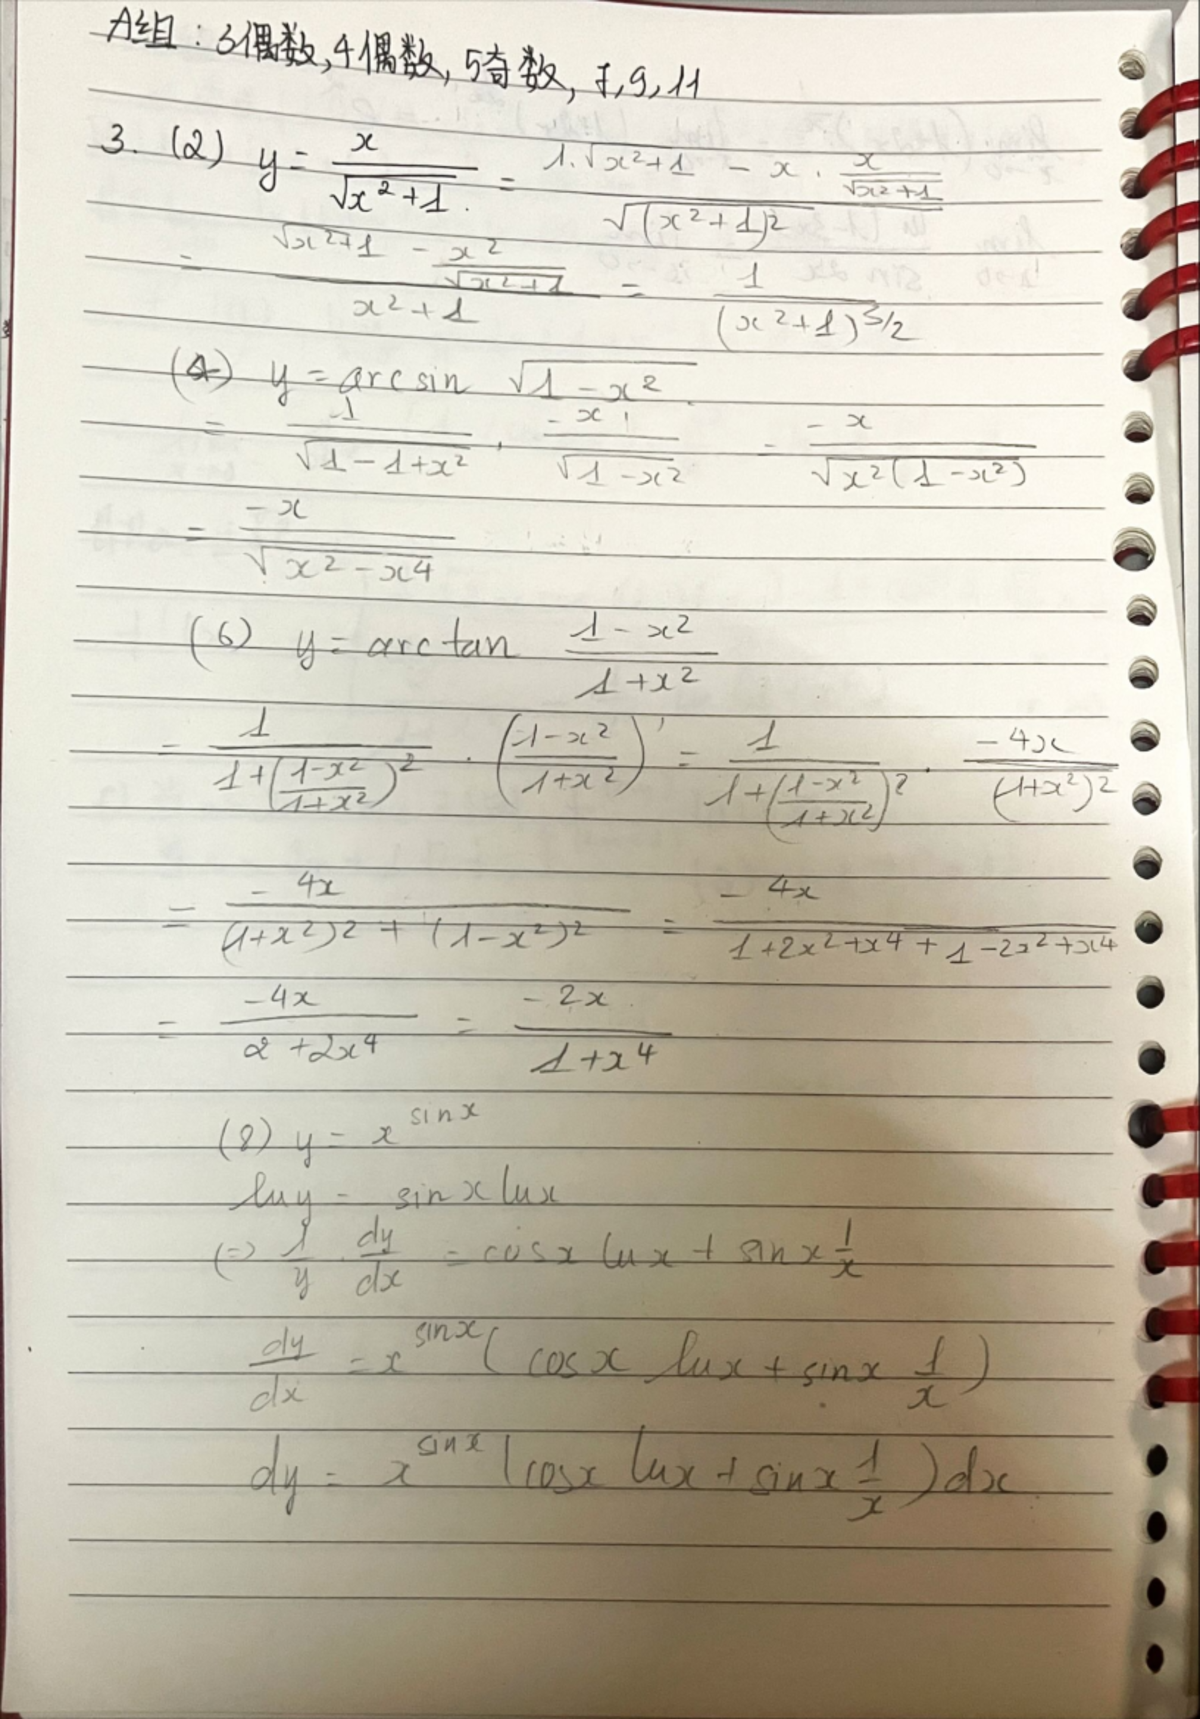 A组：3偶数,4偶数,5奇数,7,9,11
3. (2) y = x/√(x²+1) = (1·√(x²+1) − x · x/√(x²+1))/√(x²+1)²
= (√(x²+1) − x²/√(x²+1))/(x²+1) = 1/(x²+1)^3/2
(4) y = arcsin √(1−x²)
= 1/√(1−1+x²) · −x/√(1−x²) = −x/√(x²(1−x²))
= −x/√(x²−x⁴)
(6) y = arctan (1−x²)/(1+x²)
= 1/(1+((1−x²)/(1+x²))²) · ((1−x²)/(1+x²))' = 1/(1+((1−x²)/(1+x²))²) · −4x/(1+x²)²
= −4x/((1+x²)²+(1−x²)²) = −4x/(1+2x²+x⁴+1−2x²+x⁴)
= −4x/(2+2x⁴) = −2x/(1+x⁴)
(8) y = x^sinx
lny = sinx lnx
(=) 1/y · dy/dx = cosx lnx + sinx 1/x
dy/dx = x^sinx (cosx lnx + sinx 1/x)
dy = x^sinx (cosx lnx + sinx 1/x) dx